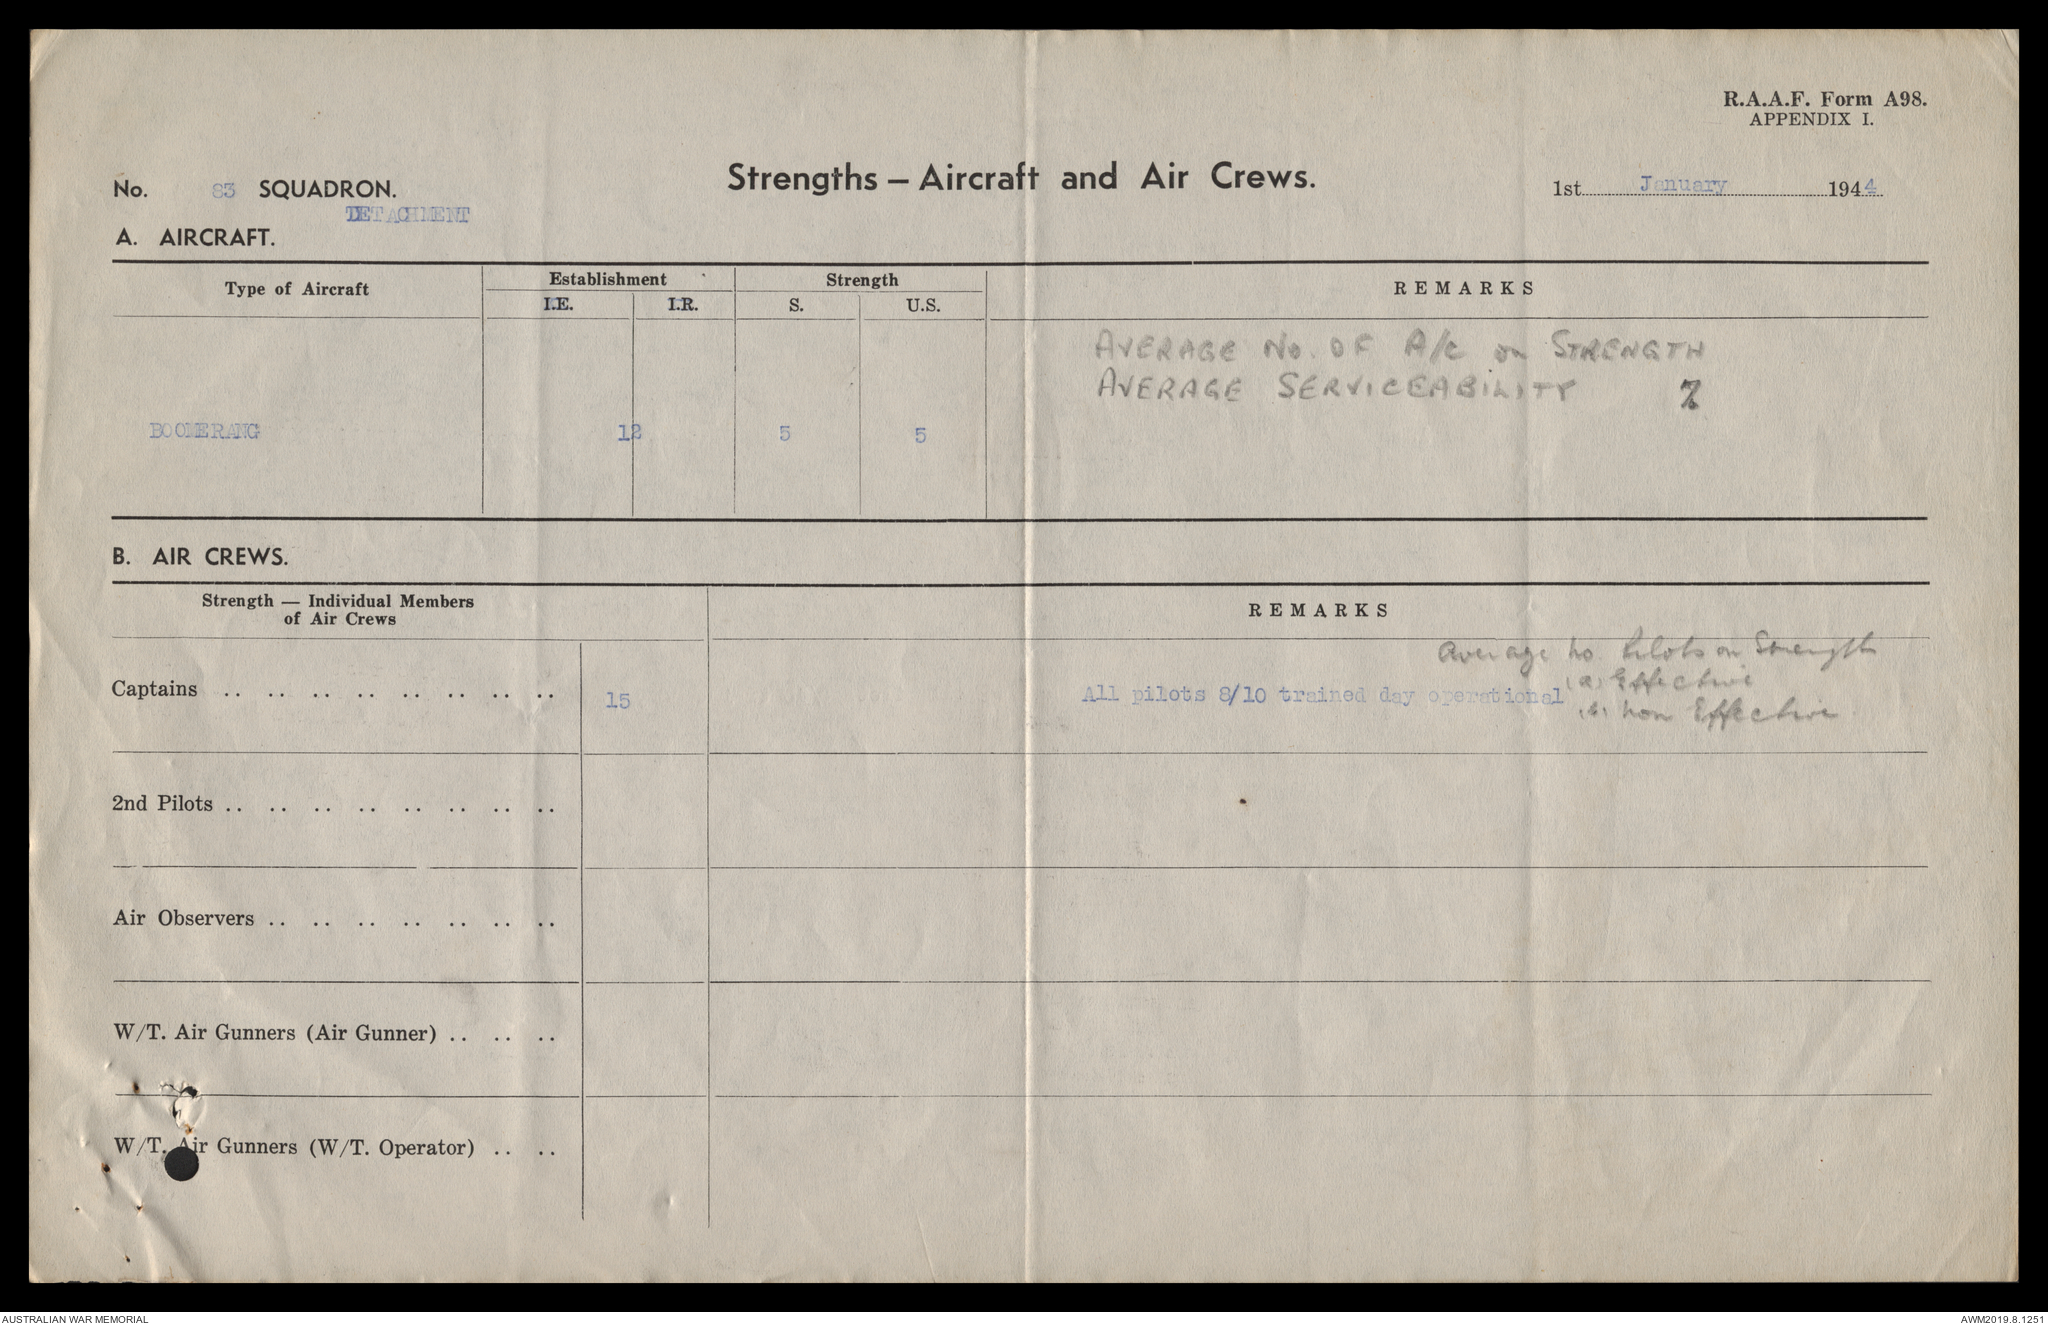 R.A.A.F. Form A98.
APPENDIX I.
Strengths – Aircraft and Air Crews.
No. 83 SQUADRON.
DETACHMENT
1st January 1944
A. AIRCRAFT.
Type of Aircraft
Establishment
Strength
REMARKS
I.E. I.R. S. U.S.
AVERAGE No. OF A/C on STRENGTH
AVERAGE SERVICEABILITY %
BOOMERANG 12 5 5
B. AIR CREWS.
Strength — Individual Members
of Air Crews
REMARKS
Average no. Pilots on Strength
(a) Effective
Captains .. .. .. .. .. .. .. .. 15 All pilots 8/10 trained day operational
(b) Non Effective
2nd Pilots .. .. .. .. .. .. .. ..
Air Observers .. .. .. .. .. .. ..
W/T. Air Gunners (Air Gunner) .. .. ..
W/T. Air Gunners (W/T. Operator) .. ..
AUSTRALIAN WAR MEMORIAL
AWM2019.8.1251